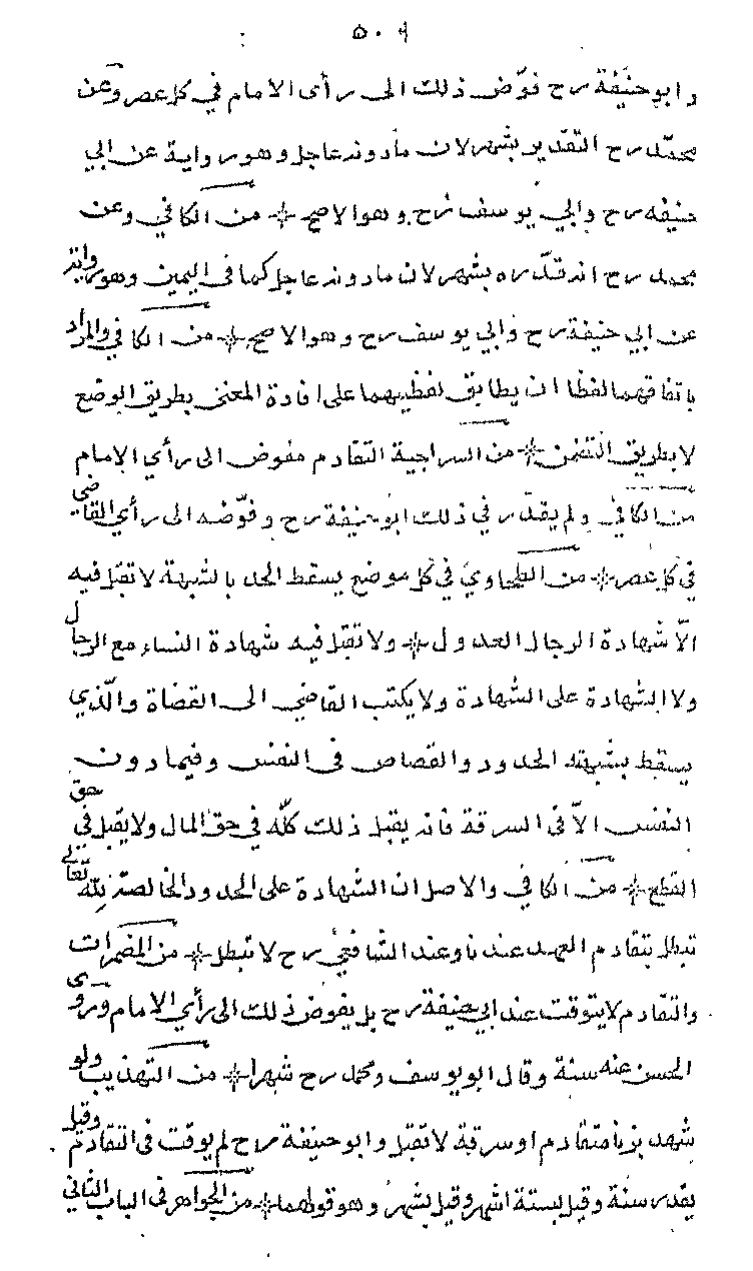 ٥٠٦
وابو حنيفة رح فوّض ذلك الى رأى الامام في كل عصر وعن
محمّد رح التقدير بشهر لان مادونه عاجل وهو رواية عن ابي
حنيفه رح وابي يوسف رح وهو الاصح * من الكافي وعن
محمد رح انه قدّره بشهر لان مادونه عاجل كما فى اليمين وهو رواية
عن ابي حنيفة رح وابي يوسف رح وهو الاصح * من الكافي والمراد
باتفاقهما لفظا ان يطابق لفظيهما على افادة المعنى بطريق الوضع
لا بطريق التضمن * من السراجية التقادم مفوض الى رأي الامام
من الكافي ولم يقدّر في ذلك ابو حنيفة رح وفوّضه الى رأي القاضى
في كل عصر * من الطحاوي في كل موضع يسقط الحد بالشبهة لا تقبل فيه
الّا شهادة الرجال العدول * ولا تقبل فيه شهادة النساء مع الرجال
ولا الشهادة على الشهادة ولا يكتب القاضي الى القضاة والّذي
يسقط بشبهة الحدود والقصاص فى النفس وفيما دون
النفس الّا فى السرقة فانه يقبل ذلك كلّه في حق المال ولا يقبل في حق
القطع * من الكافي والاصل ان الشهادة على الحدود الخالصة للّه تعالى
تبطل بتقادم العهد عندنا وعند الشافعي رح لا تبطل * من المضمرات
والتقادم لا يتوقت عند ابي حنيفة رح بل يفوض ذلك الى رأي الامام وروى
الحسن عنه سنة وقال ابو يوسف ومحمد رح شهرا * من التهذيب ولو
شهد بزنا متقادم او سرقة لا تقبل وابو حنيفة رح لم يوقت فى التقادم وقيل
يقدر سنة وقيل بستة اشهر وقيل بشهر وهو قولهما * من الجواهر فى الباب الثاني